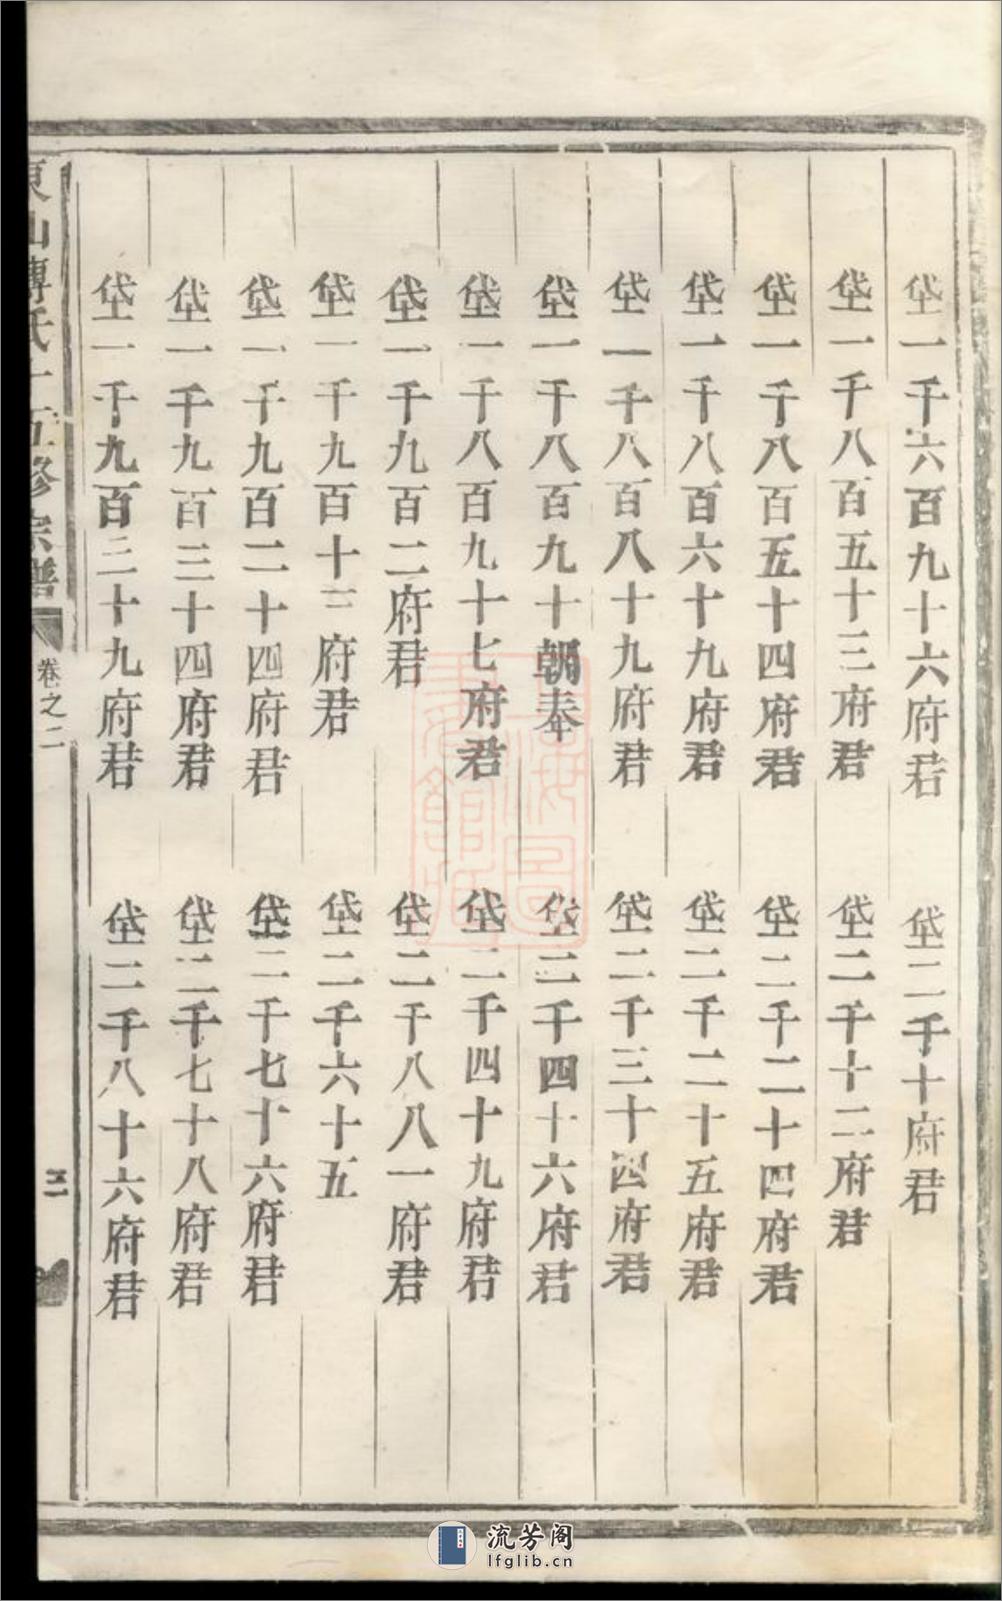 垈一千六百九十六府君
垈二千十府君
垈一千八百五十三府君
垈二千十二府君
垈一千八百五十四府君
垈二千二十四府君
垈一千八百六十九府君
垈二千二十五府君
垈一千八百八十九府君
垈二千三十四府君
垈一千八百九十朝奉
垈二千四十六府君
垈一千八百九十七府君
垈二千四十九府君
垈一千九百二府君
垈二千八八一府君
垈一千九百十三府君
垈二千六十五
垈一千九百二十四府君
垈二千七十六府君
垈一千九百三十四府君
垈二千七十八府君
垈一千九百三十九府君
垈二千八十六府君
東山傅氏十五修宗譜
卷之二
流芳阁
lfglib.cn